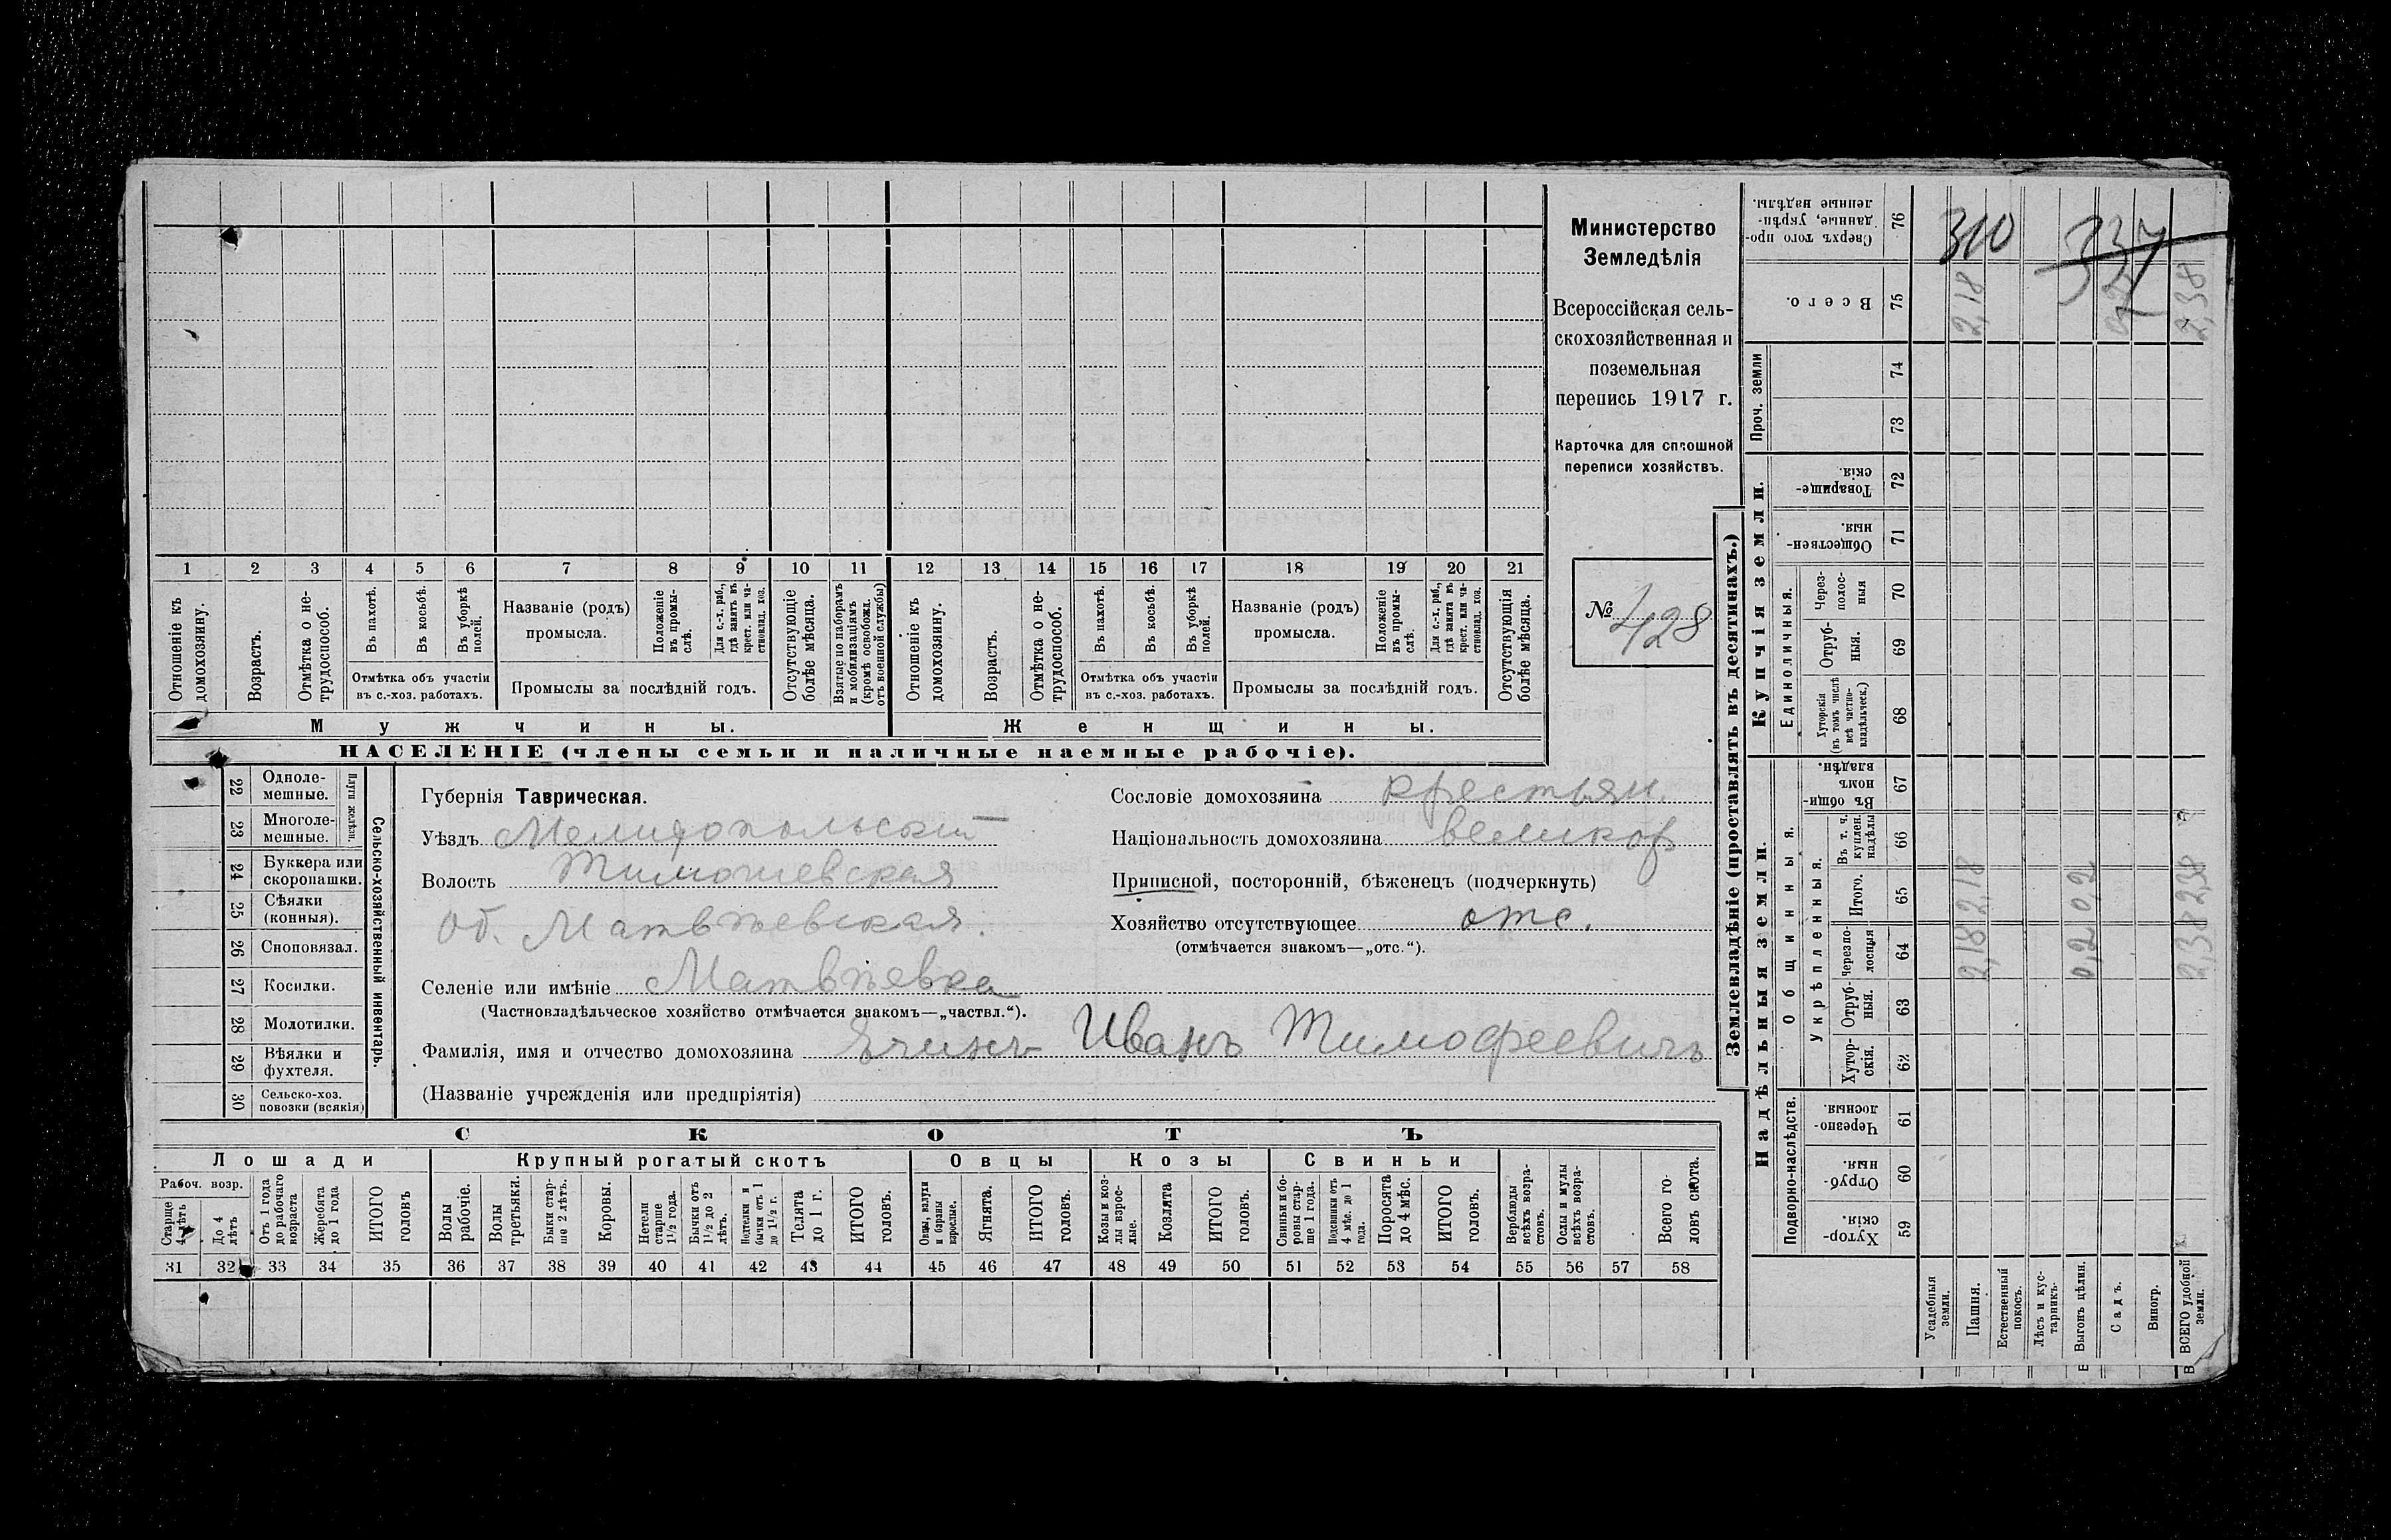 Министерство
Земледѣлія
Всероссійская сель-
скохозяйственная и
поземельная
перепись 1917 г.
Карточка для сплошной
переписи хозяйствъ.
№ 428
1 2 3 4 5 6 7 8 9 10 11 12 13 14 15 16 17 18 19 20 21
Отношеніе къ домохозяину.
Возрастъ.
Отмѣтка о не-трудоспособ.
Въ пахотѣ.
Въ косьбѣ.
Въ уборкѣ полей.
Отмѣтка объ участіи
въ с.-хоз. работахъ.
Названіе (родъ)
промысла.
Положеніе въ промы-слѣ.
Для с.-х. раб., гдѣ занятъ въ крест. или ча-стновлад. хоз.
Промыслы за послѣдній годъ.
Отсутствующіе болѣе мѣсяца.
Взятые по наборамъ и мобилизаціямъ (кромѣ освобожд. отъ военной службы)
Отношеніе къ домохозяину.
Возрастъ.
Отмѣтка о не-трудоспособ.
Въ пахотѣ.
Въ косьбѣ.
Въ уборкѣ полей.
Отмѣтка объ участіи
въ с.-хоз. работахъ.
Названіе (родъ)
промысла.
Положеніе въ промы-слѣ.
Для с.-х. раб., гдѣ занятъ въ крест. или ча-стновлад. хоз.
Промыслы за послѣдній годъ.
Отсутствующія болѣе мѣсяца.
Мужчины.
Женщины.
НАСЕЛЕНІЕ (члены семьи и наличные наемные рабочіе).
Сельско-хозяйственный инвентарь.
Плуги желѣзн.
22 Одноле-мешные.
23 Многоле-мешные.
24 Буккера или скоропашки.
25 Сѣялки (конныя).
26 Сноповязал.
27 Косилки.
28 Молотилки.
29 Вѣялки и фухтеля.
30 Сельско-хоз. повозки (всякія)
Губернія Таврическая.
Уѣздъ Мелитопольскій
Волость Тимошевская
об. Матвѣевская.
Селеніе или имѣніе Матвѣевка
(Частновладѣльческое хозяйство отмѣчается знакомъ—„частвл.“).
Сословіе домохозяина крестьян.
Національность домохозяина великор
Приписной, посторонній, бѣженецъ (подчеркнуть)
Хозяйство отсутствующее отс.
(отмѣчается знакомъ—„отс.“).
Фамилія, имя и отчество домохозяина Иванъ Тимофеевичъ
(Названіе учрежденія или предпріятія)
СКОТЪ
Лошади
Крупный рогатый скотъ
Овцы
Козы
Свиньи
Рабоч. возр.
Старше 4 лѣтъ
До 4 лѣтъ
Отъ 1 года до рабочаго возраста
Жеребята до 1 года
ИТОГО головъ
Волы рабочіе.
Волы третьяки.
Быки стар-ше 2 лѣтъ.
Коровы.
Нетели старше 1½ года.
Бычки отъ 1½ до 2 лѣтъ.
Подтелки и бычки отъ 1 до 1½ г.
Телята до 1 г.
ИТОГО головъ.
Овцы, валухи и бараны взрослые.
Ягнята.
ИТОГО головъ.
Козы и коз-лы взрос-лые.
Козлята
ИТОГО головъ.
Свиньи и бо-ровы стар-ше 1 года.
Подсвинки отъ 4 мѣс. до 1 года.
Поросята до 4 мѣс.
ИТОГО головъ.
Верблюды всѣхъ возра-стовъ.
Ослы и мулы всѣхъ возра-стовъ.
Всего го-ловъ скота.
31 32 33 34 35 36 37 38 39 40 41 42 43 44 45 46 47 48 49 50 51 52 53 54 55 56 57 58
Землевладѣніе (проставлять въ десятинахъ.)
Купчія земли.
Надѣльныя земли.
Проч. земли
Единоличныя.
Общинныя.
Укрѣпленныя.
Подворно-наслѣдств.
Сверхъ того про-данные, укрѣп-ленные надѣлы. 76 310 337
Всего. 75 2,18 0,2 2,38
74
73
Товарище-скія. 72
Обществен-ныя. 71
Через-полос-ныя 70
Отруб-ныя. 69
Хуторскія (въ томъ числѣ всѣ частно-владѣльческ.) 68
Въ общин-номъ владѣн. 67
Въ т. ч. куплен. надѣлы 66
Итого. 65 2,18 0,2 2,38
Черезпо-лосныя 64 2,18 0,2 2,38
Отруб-ныя. 63
Хутор-скія. 62
Черезпо-лосныя. 61
Отруб-ныя. 60
Хутор-скія. 59
Усадебныя земли.
Пашня.
Естественный покосъ.
Лѣсъ и кус-тарникъ.
Выгонъ цѣлин.
Садъ.
Виногр.
ВСЕГО удобной земли.